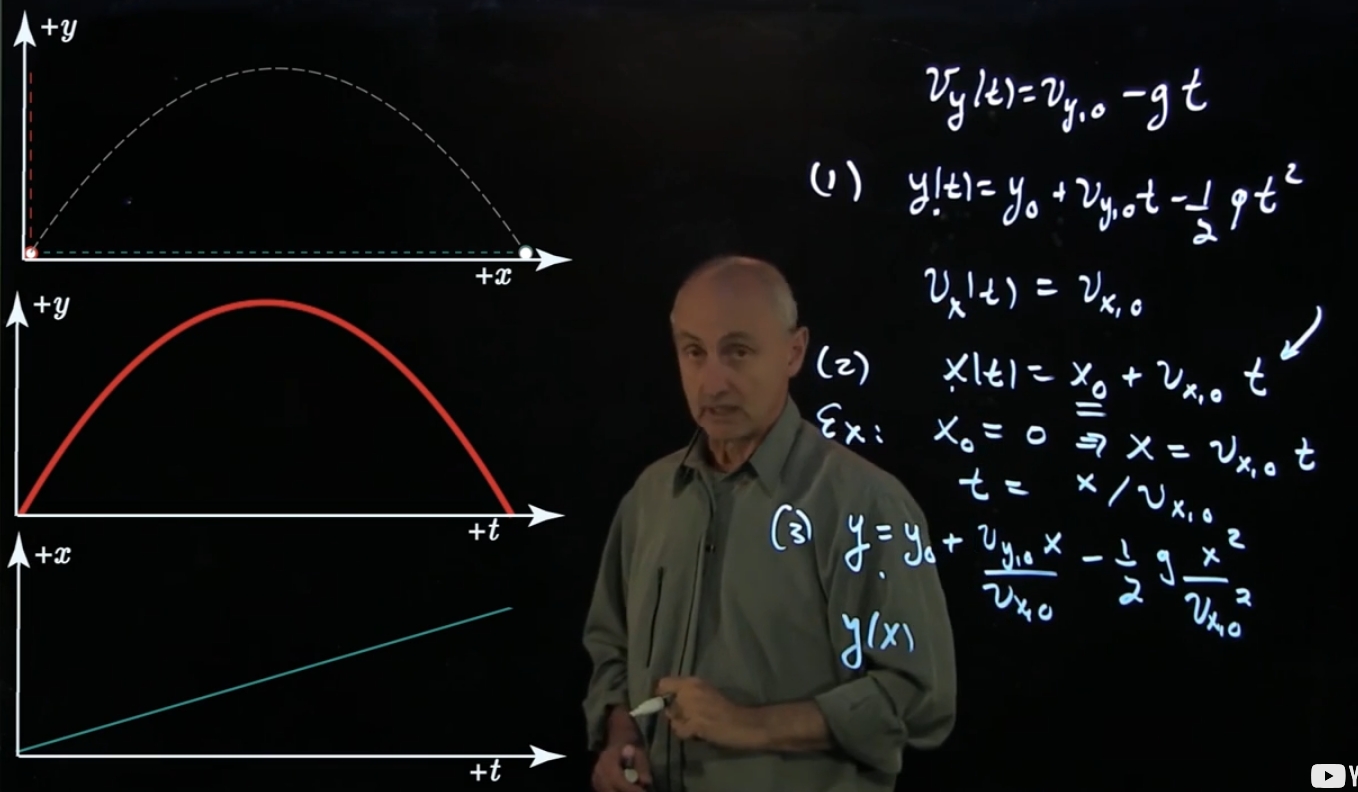 +y
+x
+y
+t
+x
+t
v_y(t) = v_{y,0} - gt
(1) y(t) = y_0 + v_{y,0}t - \frac{1}{2} gt^2
v_x(t) = v_{x,0}
(2) x(t) = x_0 + v_{x,0} t
Ex: x_0 = 0 ⇒ x = v_{x,0} t
t = x / v_{x,0}
(3) y = y_0 + \frac{v_{y,0} x}{v_{x,0}} - \frac{1}{2} g \frac{x^2}{v_{x,0}^2}
y(x)